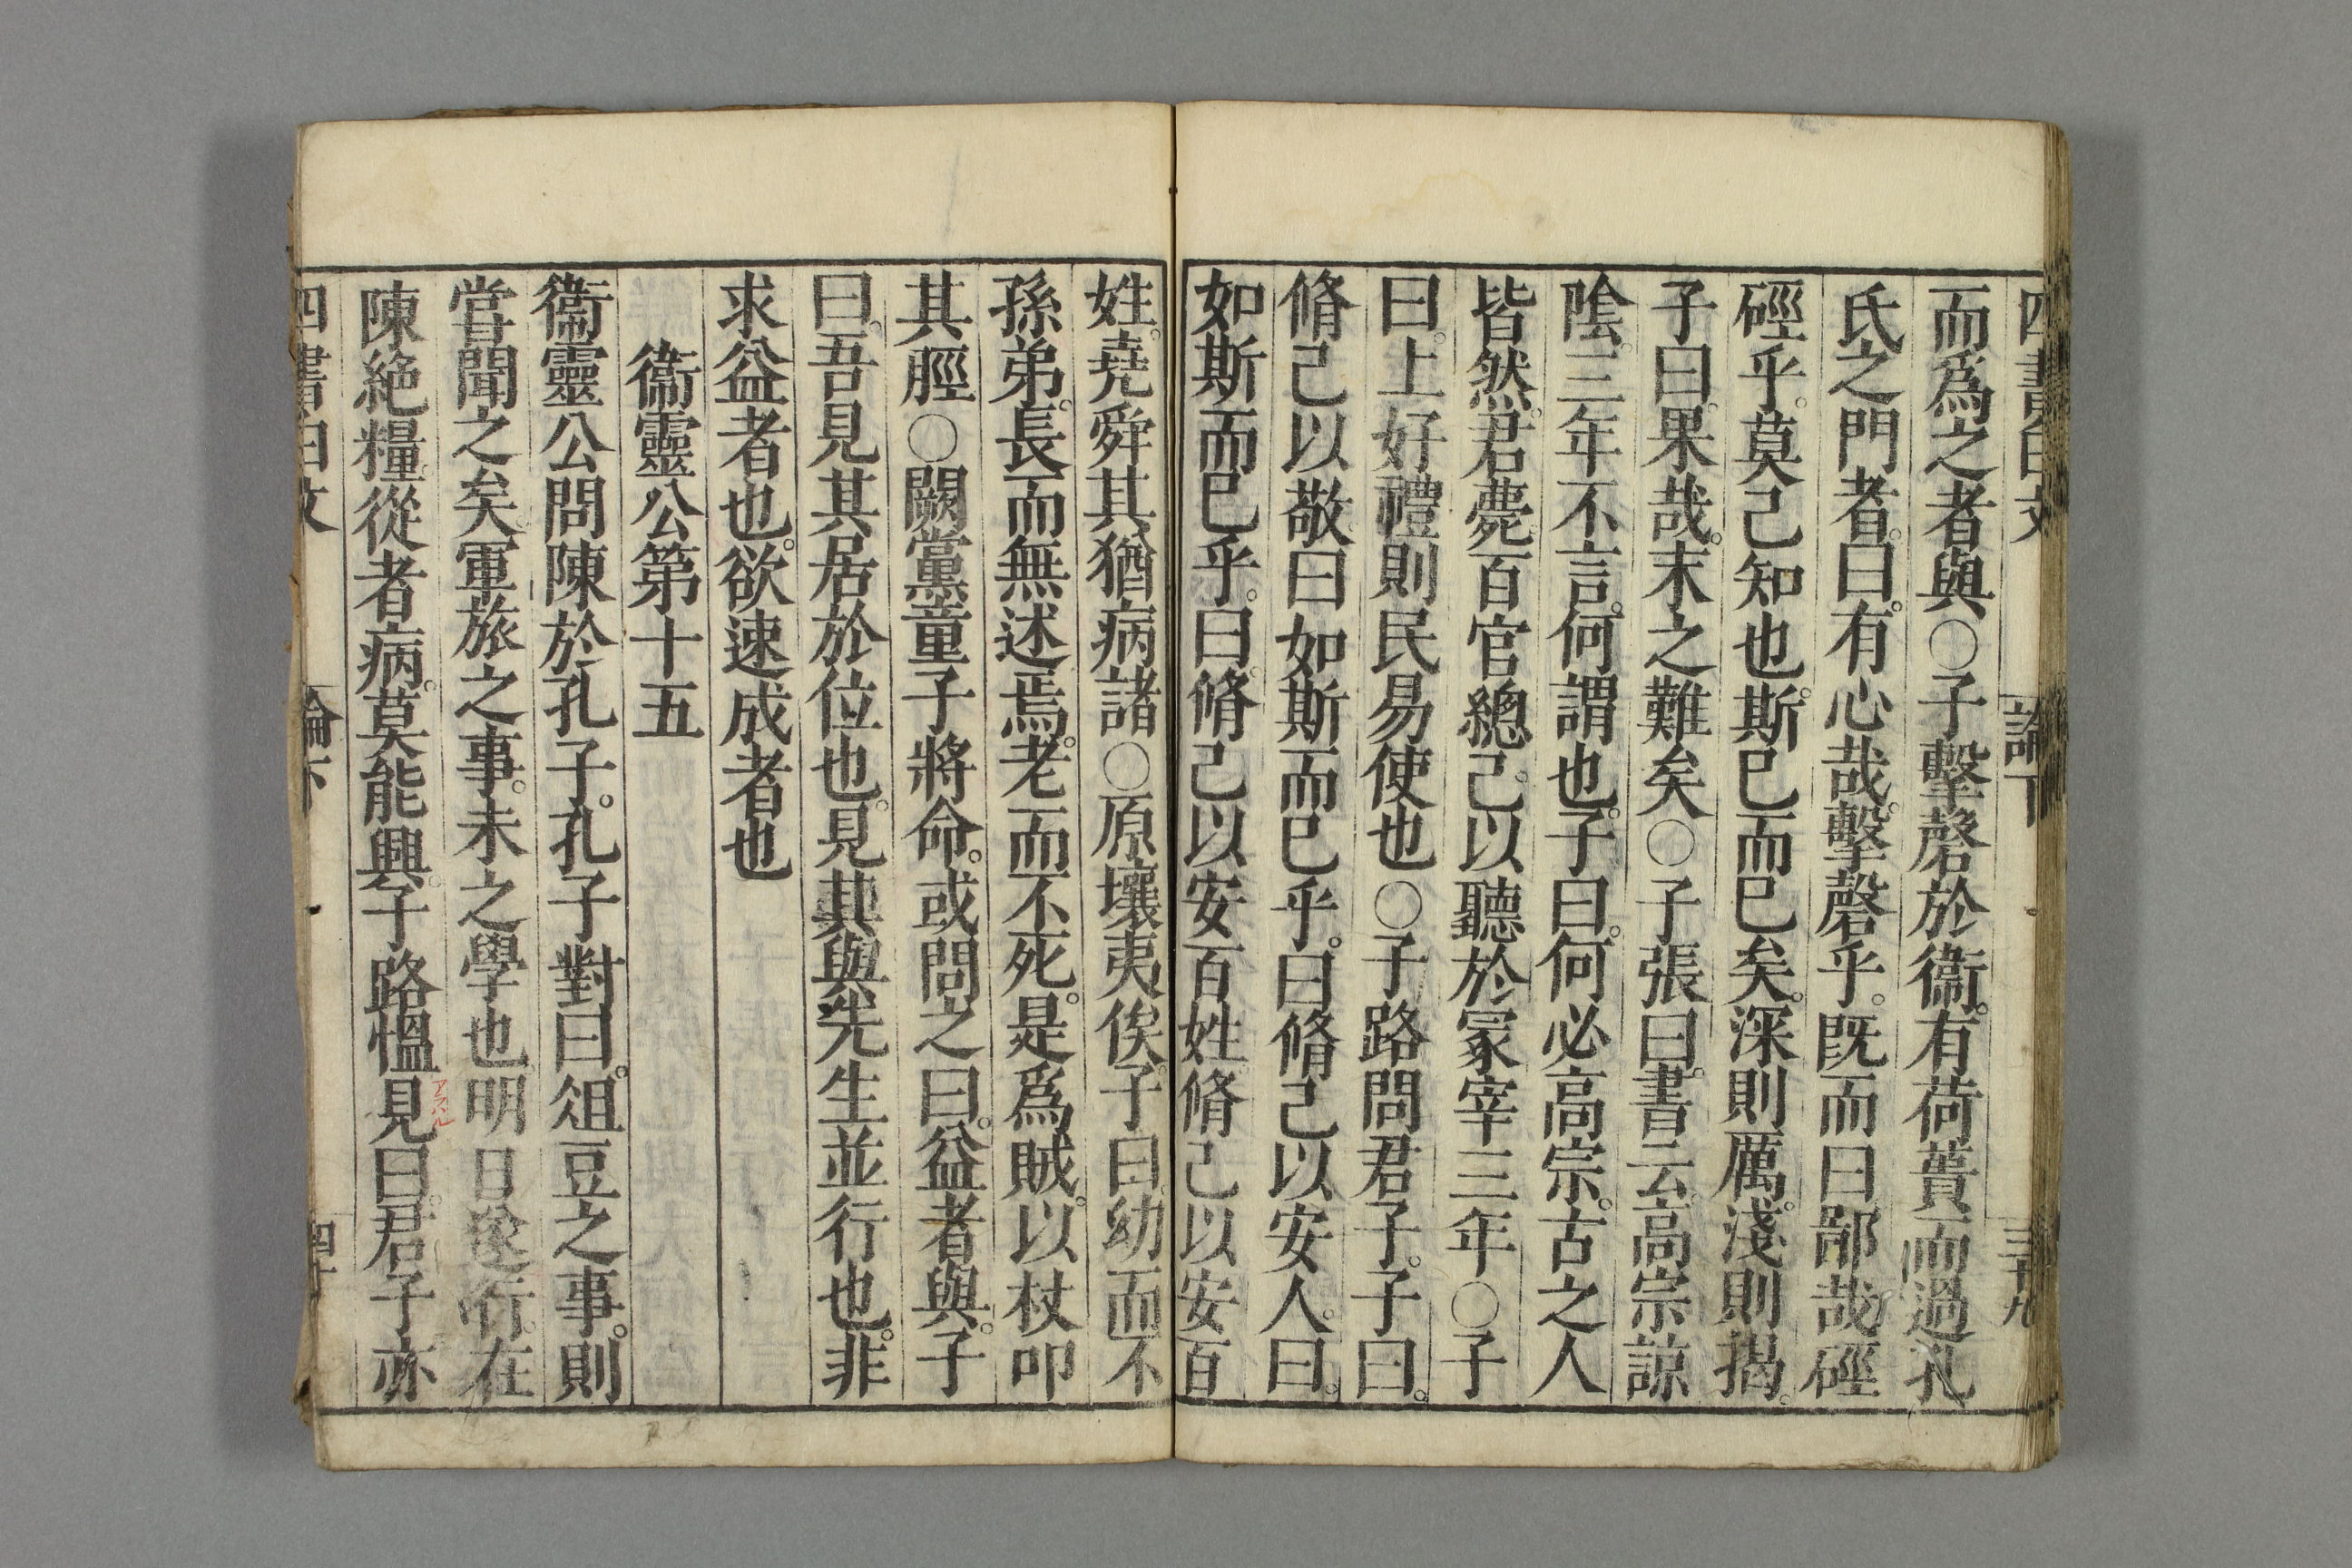 四書白文 論下 三十九
而爲之者與○子擊磬於衞。有荷蕢而過孔
氏之門者。曰。有心哉。擊磬乎。既而曰鄙哉硜
硜乎。莫己知也。斯已而已矣。深則厲。淺則揭。
子曰。果哉。末之難矣○子張曰。書云。高宗諒
陰。三年不言。何謂也。子曰。何必高宗。古之人
皆然。君薨。百官總己。以聽於冢宰三年○子
曰。上好禮則民易使也○子路問君子。子曰。
脩己以敬。曰如斯而已乎。曰脩己以安人。曰。
如斯而已乎。曰。脩己以安百姓。脩己以安百
姓。堯舜其猶病諸○原壤夷俟。子曰。幼而不
孫弟。長而無述焉。老而不死。是爲賊。以杖叩
其脛○闕黨童子將命。或問之曰。益者與。子
曰。吾見其居於位也。見其與先生並行也。非
求益者也。欲速成者也
衞靈公第十五
衞靈公問陳於孔子。孔子對曰。俎豆之事。則
嘗聞之矣。軍旅之事。未之學也。明日遂行。在
陳絶糧。從者病。莫能興。子路慍見曰。君子亦
四書白文 論下 四十